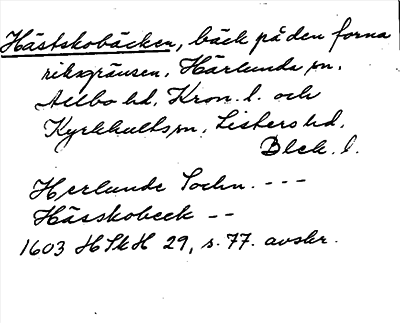 Hästskobäcken, bäck på den forna
riksgränsen, Härlunda sn.
Allbo hd, Kron. l. och
Kyrkhults sn, Listers hd,
Blek. l.
Herlunde Sochn. ---
Hässkobeck --
1603 HSkH 29, s. 77. avskr.